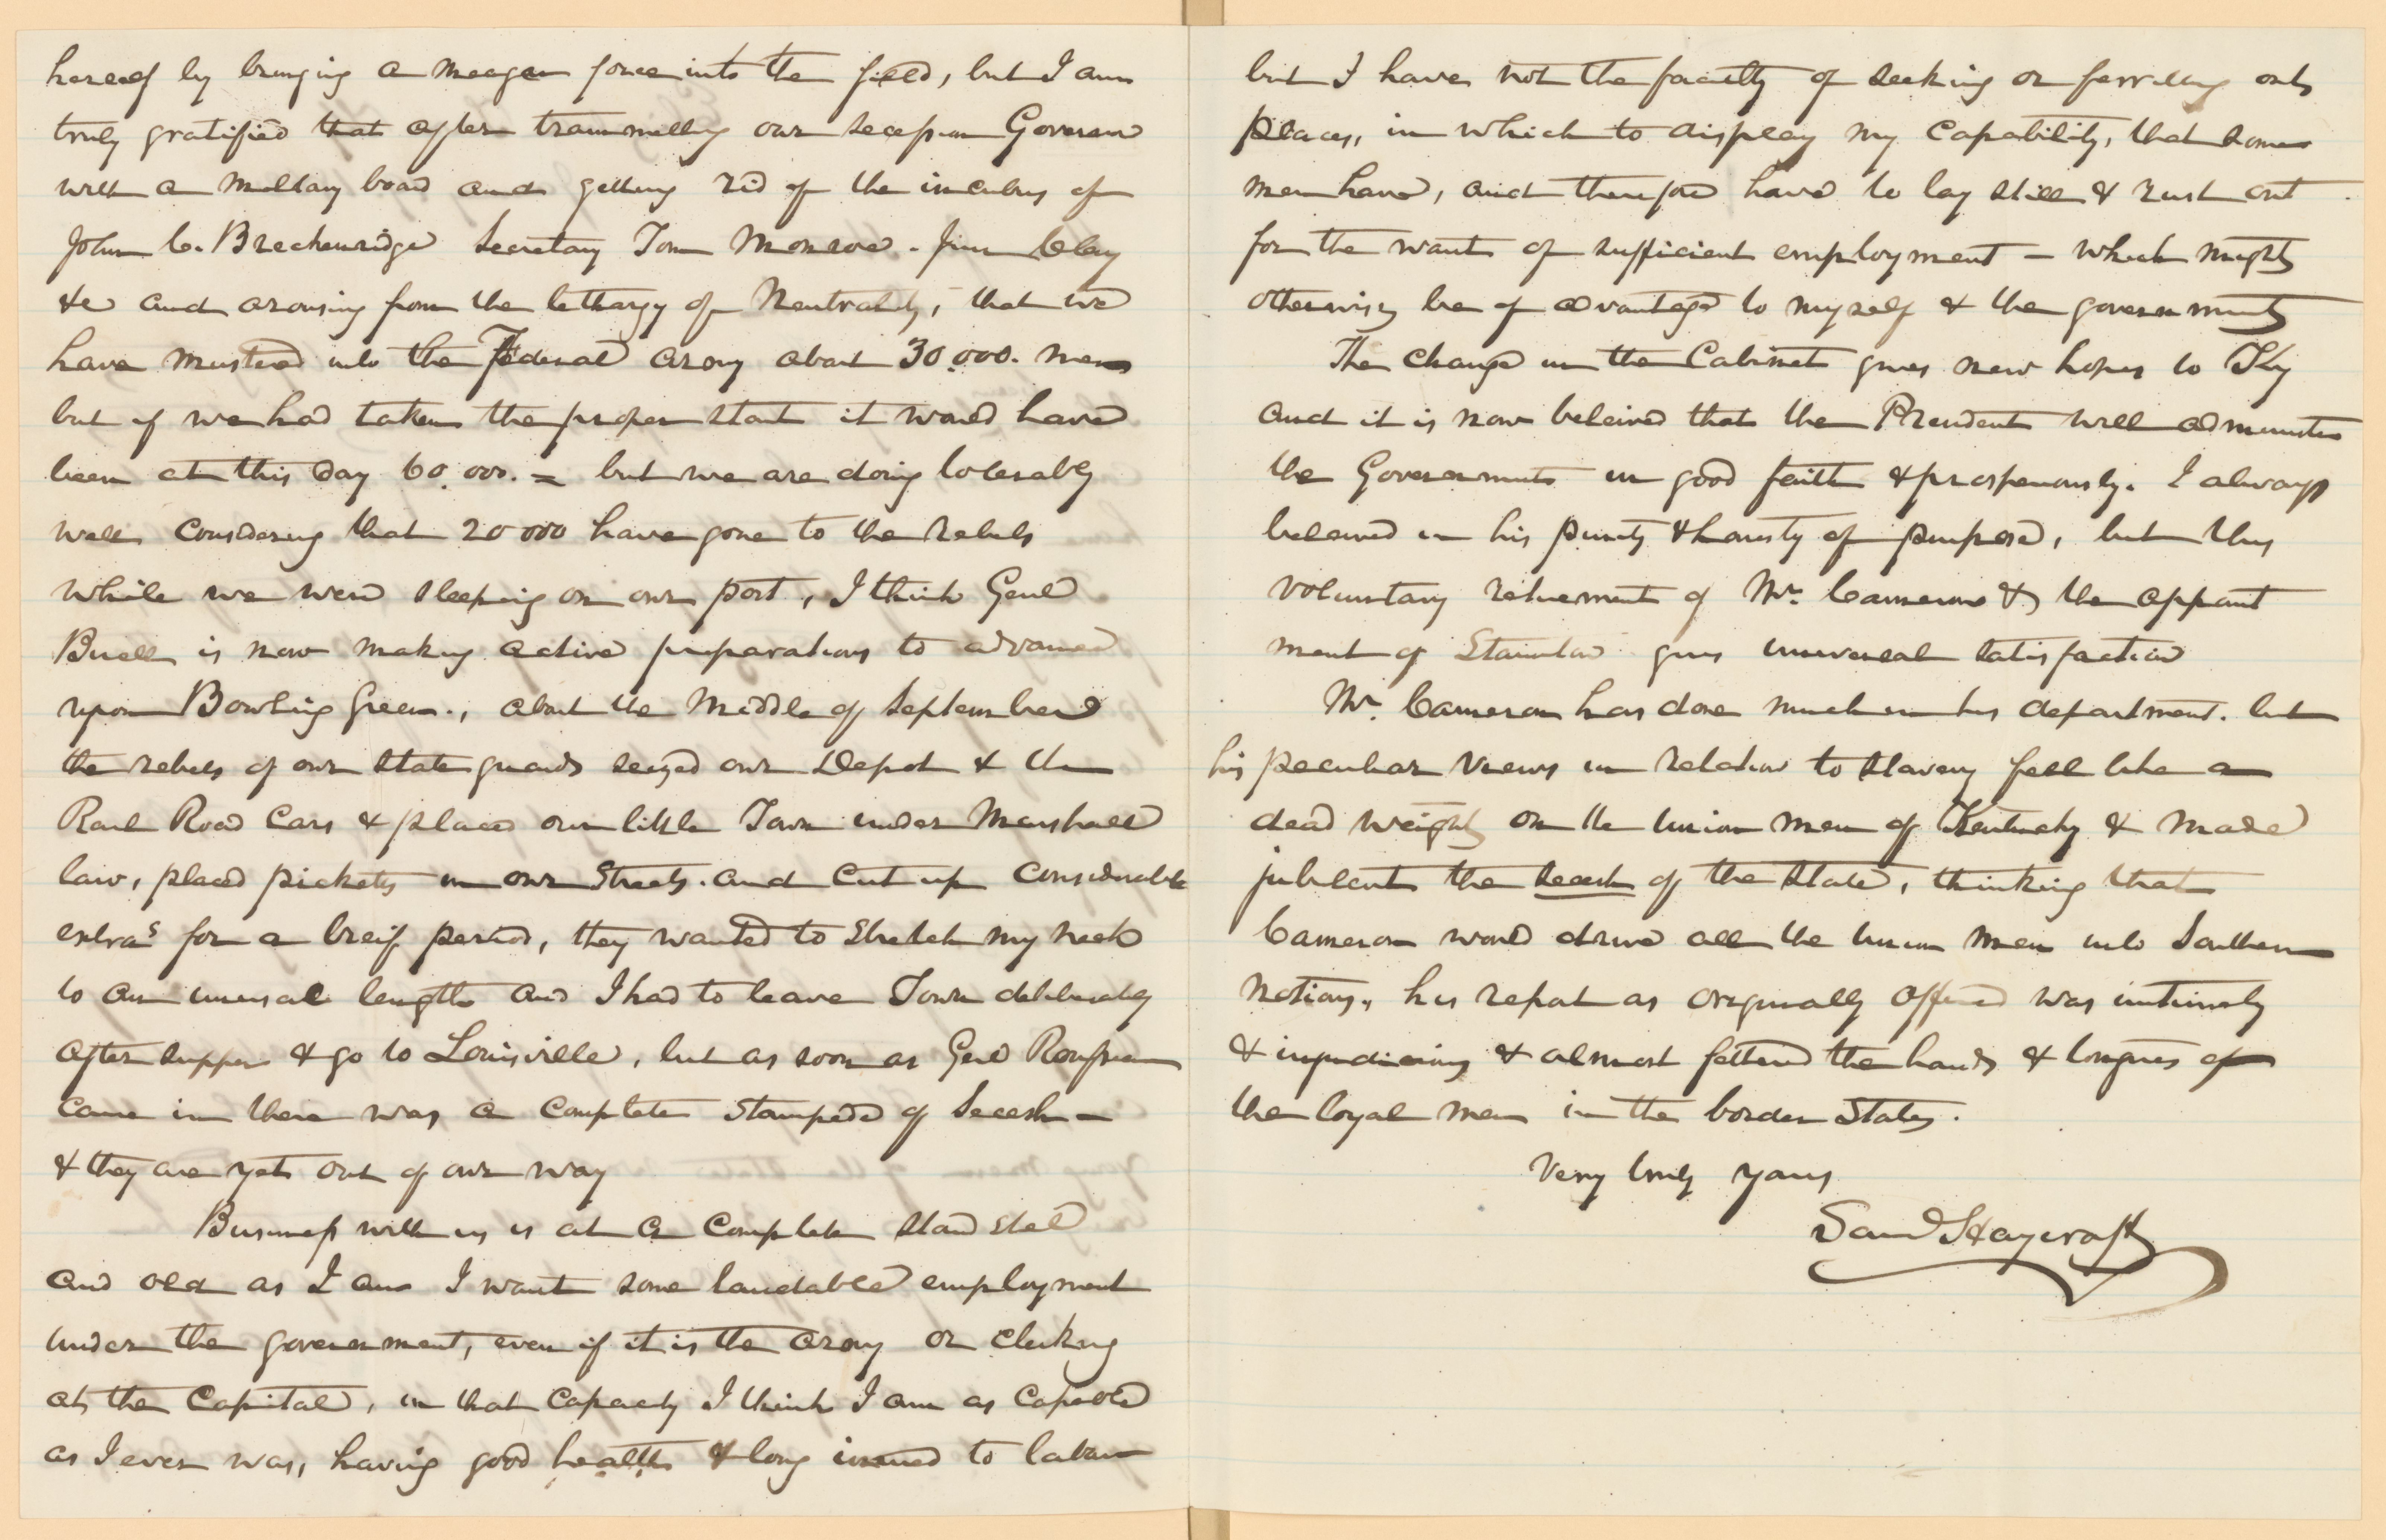 herself by bringing a meager force into the field, but I am
truly gratified that after trammelling our secession Governor
with a military board and getting rid of the incubus of
John C. Breckenridge Secretary Tom Monroe. Jim Clay
&c and arousing from the lethargy of Neutrality, that we
have mustered into the Federal army about 30,000. men
but if we had taken the proper start it would have
been at this day 60,000. = but we are doing tolerably
well considering that 20000 have gone to the rebels
while we were sleeping on our post, I think Genl
Buell is now making active preparations to advance
upon Bowling Green., about the middle of September
the rebels of our state guards seized our Depot & the
Rail Road Cars & placed our little Town under Marshall
law, placed pickets in our Streets. and cut up considerable
extras for a breif period, they wanted to Stretch my neck
to an unusual length and I had to leave Town deliberately
after supper & go to Louisville, but as soon as Genl Rousseau
came in there was a complete Stampede of Secesh –
& they are yet out of our way
Business with us is at a complete stand still
and old as I am I want some laudable employment
under the government, even if it is the army or clerking
at the Capital, in that capacity I think I am as capable
as I ever was, having good health & long inured to labour
but I have not the faculty of seeking or ferreting out
places, in which to display my capability, that some
men have, and therefore have to lay still & rust out
for the want of sufficient employment – which might
otherwise be of advantage to myself & the government
The change in the Cabinet gives new hopes to Ky
and it is now beleived that the President will administer
the Government in good faith & prosperously. I always
beleived in his purity & honesty of purpose, but this
voluntary retirement of Mr. Cameron & the appoint
ment of Stanton gives universal satisfaction
Mr. Cameron has done much in his department. but
his peculiar views in relation to slavery fell like a
dead weight on the union men of Kentucky & made
jubilant the secesh of the state, thinking that
Cameron would drive all the union men into Southern
notions, his report as originally offered was untimely
& injudicious & almost fettered the hands & tongues of
the loyal men in the border States.
Very truly yours
Saml Haycraft